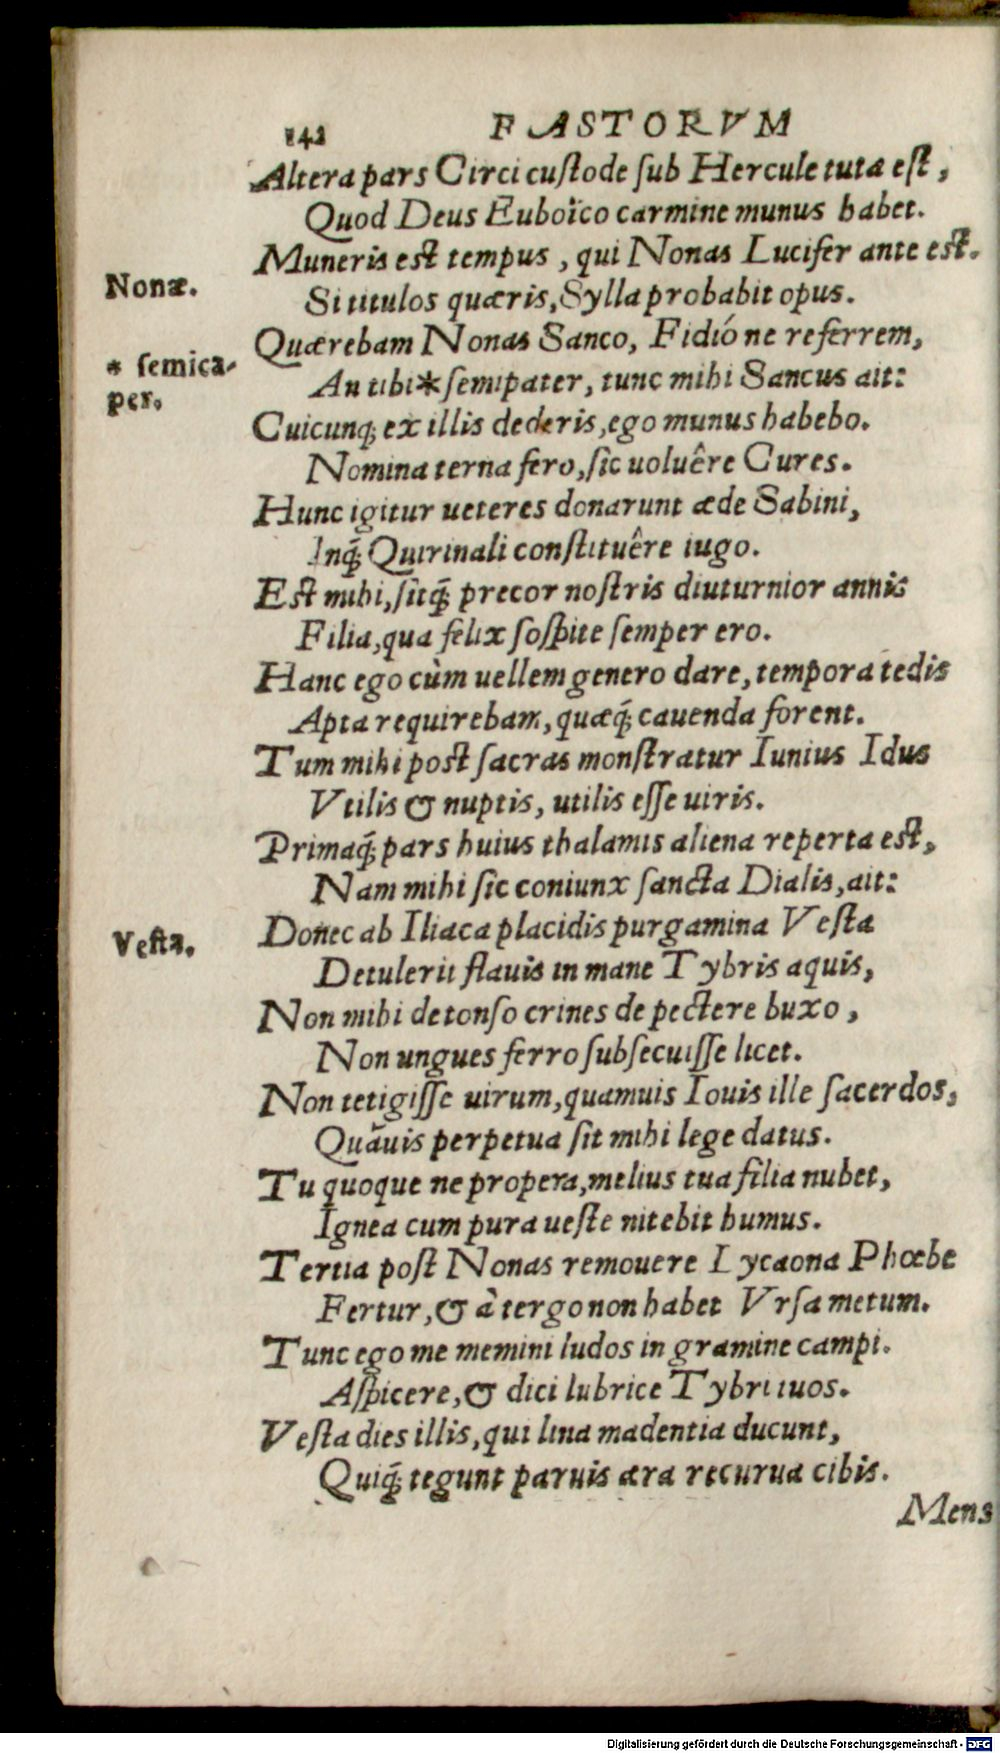 142 FASTORVM
Altera pars Circi custode sub Hercule tuta est,
Quod Deus Euboïco carmine munus habet.
Muneris est tempus, qui Nonas Lucifer ante est.
Nonæ.
Si titulos quæris, Sylla probabit opus.
Quærebam Nonas Sanco, Fidióne referrem,
* semica-
per.
An tibi * semipater, tunc mihi Sancus ait:
Cuicunq; ex illis dederis, ego munus habebo.
Nomina terna fero, sic uoluêre Cures.
Hunc igitur ueteres donarunt æde Sabini,
Inq́; Quirinali constituêre iugo.
Est mihi, sitq́; precor nostris diuturnior annis
Filia, qua felix sospite semper ero.
Hanc ego cùm uellem genero dare, tempora tedis
Apta requirebam, quæq́; cauenda forent.
Tum mihi post sacras monstratur Iunius Idus
Vtilis & nuptis, utilis esse uiris.
Primaq́; pars huius thalamis aliena reperta est,
Nam mihi sic coniunx sancta Dialis, ait:
Vesta.
Donec ab Iliaca placidis purgamina Vesta
Detulerit flauis in mane Tybris aquis,
Non mihi detonso crines depectere buxo,
Non ungues ferro subsecuisse licet.
Non tetigisse uirum, quamuis Iouis ille sacerdos,
Quãuis perpetua sit mihi lege datus.
Tu quoque ne propera, melius tua filia nubet,
Ignea cum pura ueste nitebit humus.
Tertia post Nonas remouere Lycaona Phœbe
Fertur, & à tergo non habet Vrsa metum.
Tunc ego me memini ludos in gramine campi.
Aspicere, & dici lubrice Tybri tuos.
Vesta dies illis, qui lina madentia ducunt,
Quiq́; tegunt paruis æra recurua cibis.
Mens
Digitalisierung gefördert durch die Deutsche Forschungsgemeinschaft - DFG